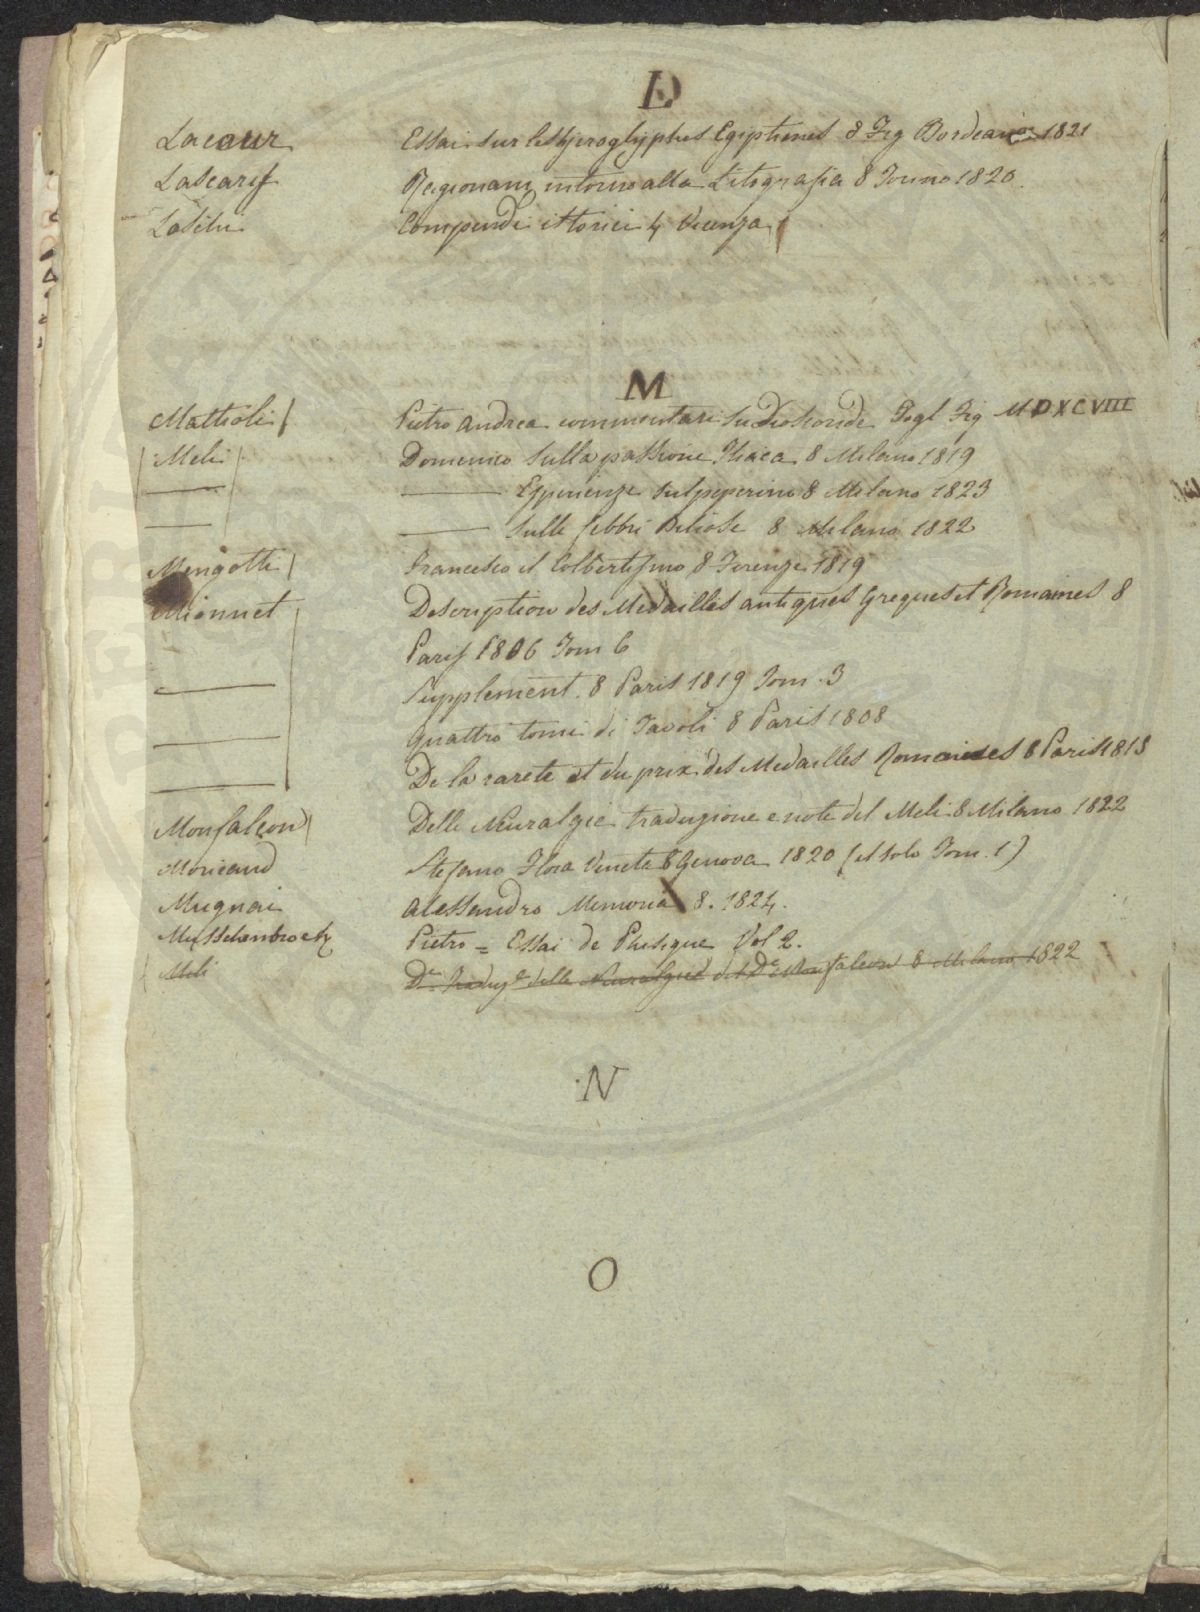 L
Lacour Essai sur les Hjeroglyphes Egiptienes 8 Fig Bordeaux 1821
Lascaris Ragionam intorno alla Litografia 8 Torino 1820.
Compendi istorici 4 Vicenza
M
Mattioli Pietro Andrea commentari su Dioscoride Fogl Fig MDXCVIII
Meli Domenico sulla passione Iliaca 8 Milano 1819
— — Esperienze sul peperino 8 Milano 1823
— — sulle febbri biliose 8 Milano 1822
Mengotti Francesco il Colbertismo 8 Firenze 1819
Mionnet Description des Medailles antiques Greques et Romaines 8
Paris 1806 Tom 6
— Supplement. 8 Paris 1819 Tom. 3
— quattro tomi di Tavoli 8 Paris 1808
— De la rareté et du prix des Medailles Romaines 8 Paris 1815
Monfalcon Delle Neuralgie traduzione e note del Meli 8 Milano 1822
Moricand Stefano Flora Veneta 8 Genova 1820 (il solo Tom. 1)
Mugnai Alessandro Memoria 8. 1824.
Musschenbroek Pietro = Essai de Phisique Vol 2.
Meli Dr. Traduze delle Neuralgie del Dr Monfalcon 8 Milano 1822
N
O